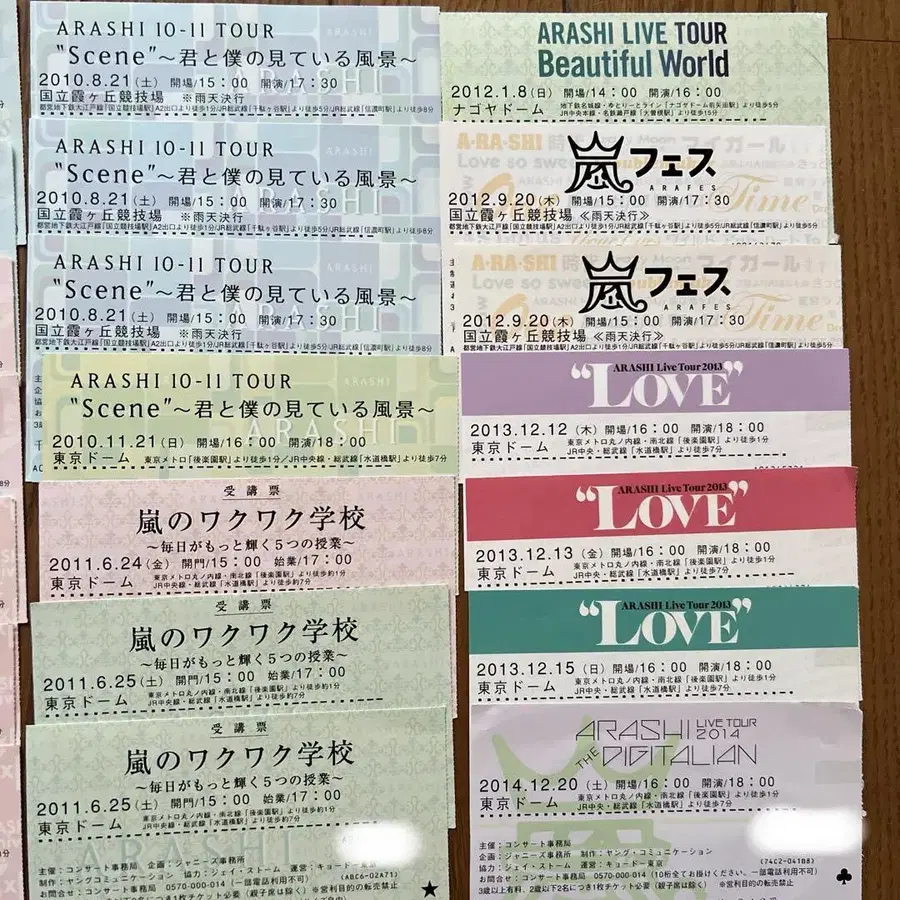 ARASHI 10-11 TOUR
"Scene"～君と僕の見ている風景～
2010.8.21(土) 開場/15:00 開演/17:30
国立霞ヶ丘競技場 ※雨天決行
都営地下鉄大江戸線「国立競技場駅」A2出口より徒歩1分/JR総武線「千駄ヶ谷駅」より徒歩5分/JR総武線「信濃町駅」より徒歩8分
ARASHI 10-11 TOUR
"Scene"～君と僕の見ている風景～
2010.8.21(土) 開場/15:00 開演/17:30
国立霞ヶ丘競技場 ※雨天決行
都営地下鉄大江戸線「国立競技場駅」A2出口より徒歩1分/JR総武線「千駄ヶ谷駅」より徒歩5分/JR総武線「信濃町駅」より徒歩8分
ARASHI 10-11 TOUR
"Scene"～君と僕の見ている風景～
2010.8.21(土) 開場/15:00 開演/17:30
国立霞ヶ丘競技場 ※雨天決行
都営地下鉄大江戸線「国立競技場駅」A2出口より徒歩1分/JR総武線「千駄ヶ谷駅」より徒歩5分/JR総武線「信濃町駅」より徒歩8分
ARASHI 10-11 TOUR
"Scene"～君と僕の見ている風景～
2010.11.21(日) 開場/16:00 開演/18:00
東京ドーム 東京メトロ「後楽園駅」より徒歩1分/JR中央線・総武線「水道橋駅」より徒歩7分
受講票
嵐のワクワク学校
～毎日がもっと輝く5つの授業～
2011.6.24(金) 開門/15:00 始業/17:00
東京ドーム 東京メトロ丸ノ内線・南北線「後楽園駅」より徒歩約1分
JR中央線・総武線「水道橋駅」より徒歩約7分
受講票
嵐のワクワク学校
～毎日がもっと輝く5つの授業～
2011.6.25(土) 開門/15:00 始業/17:00
東京ドーム 東京メトロ丸ノ内線・南北線「後楽園駅」より徒歩約1分
JR中央線・総武線「水道橋駅」より徒歩約7分
受講票
嵐のワクワク学校
～毎日がもっと輝く5つの授業～
2011.6.25(土) 開門/15:00 始業/17:00
東京ドーム 東京メトロ丸ノ内線・南北線「後楽園駅」より徒歩約1分
JR中央線・総武線「水道橋駅」より徒歩約7分
ARASHI
主催:コンサート事務局 企画:ジャニーズ事務所
制作:ヤング・コミュニケーション 協力:ジェイ・ストーム 運営:キョードー東京
お問合せ:コンサート事務局 0570-000-014(一部電話利用不可)
(ABC6-02A71)
★
ARASHI LIVE TOUR
Beautiful World
2012.1.8(日) 開場/14:00 開演/16:00
ナゴヤドーム 地下鉄名城線・ゆとりーとライン「ナゴヤドーム前矢田駅」より徒歩5分
JR中央本線・名鉄瀬戸線「大曽根駅」より徒歩15分
嵐フェス
ARAFES
2012.9.20(木) 開場/15:00 開演/17:30
国立霞ヶ丘競技場 《雨天決行》
都営地下鉄大江戸線「国立競技場駅」A2出口より徒歩1分/JR総武線「千駄ヶ谷駅」より徒歩5分/JR総武線「信濃町駅」より徒歩8分
嵐フェス
ARAFES
2012.9.20(木) 開場/15:00 開演/17:30
国立霞ヶ丘競技場 《雨天決行》
都営地下鉄大江戸線「国立競技場駅」A2出口より徒歩1分/JR総武線「千駄ヶ谷駅」より徒歩5分/JR総武線「信濃町駅」より徒歩8分
ARASHI Live Tour 2013
"LOVE"
2013.12.12(木) 開場/16:00 開演/18:00
東京ドーム 東京メトロ丸ノ内線・南北線「後楽園駅」より徒歩1分
JR中央線・総武線「水道橋駅」より徒歩7分
ARASHI Live Tour 2013
"LOVE"
2013.12.13(金) 開場/16:00 開演/18:00
東京ドーム 東京メトロ丸ノ内線・南北線「後楽園駅」より徒歩1分
JR中央線・総武線「水道橋駅」より徒歩7分
ARASHI Live Tour 2013
"LOVE"
2013.12.15(日) 開場/16:00 開演/18:00
東京ドーム 東京メトロ丸ノ内線・南北線「後楽園駅」より徒歩1分
JR中央線・総武線「水道橋駅」より徒歩7分
ARASHI LIVE TOUR 2014
THE DIGITALIAN
2014.12.20(土) 開場/16:00 開演/18:00
東京ドーム 東京メトロ丸ノ内線・南北線「後楽園駅」より徒歩1分
JR中央・総武線「水道橋駅」より徒歩7分
主催:コンサート事務局
企画:ジャニーズ事務所 制作:ヤング・コミュニケーション
協力:ジェイ・ストーム 運営:キョードー東京
(74C2-041B8)
お問合せ:コンサート事務局 0570-000-014(10桁全てお掛けください。一部電話利用不可)
3歳以上有料、2歳以下2名につき1枚チケット必要(親子席は除く) ※営利目的の転売禁止
♣